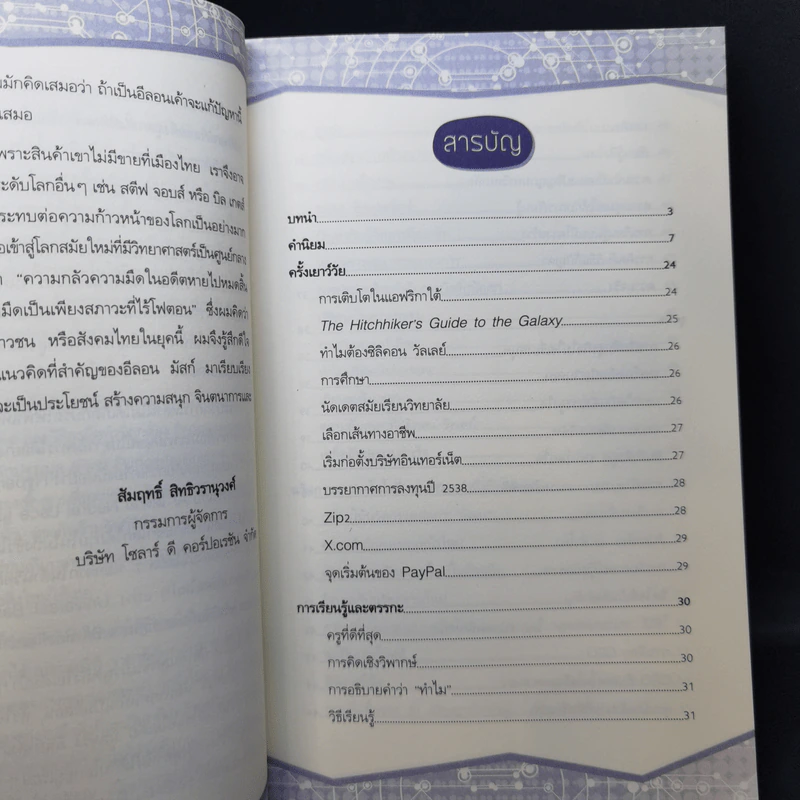 มมักคิดเสมอว่า ถ้าเป็นอีลอนเค้าจะแก้ปัญหานี้
เสมอ
พราะสินค้าเขาไม่มีขายที่เมืองไทย เราจึงอาจ
ระดับโลกอื่นๆ เช่น สตีฟ จอบส์ หรือ บิล เกตส์
ระทบต่อความก้าวหน้าของโลกเป็นอย่างมาก
อเข้าสู่โลกสมัยใหม่ที่มีวิทยาศาสตร์เป็นศูนย์กลาง
า "ความกลัวความมืดในอดีตหายไปหมดสิ้น
มืดเป็นเพียงสภาวะที่ไร้โฟตอน" ซึ่งผมคิดว่า
าวชน หรือสังคมไทยในยุคนี้ ผมจึงรู้สึกดีใจ
แนวคิดที่สำคัญของอีลอน มัสก์ มาเรียบเรียง
จะเป็นประโยชน์ สร้างความสนุก จินตนาการและ
สัมฤทธิ์ สิทธิวรานุวงศ์
กรรมการผู้จัดการ
บริษัท โซลาร์ ดี คอร์ปอเรชัน จำกัด
สารบัญ
บทนำ 3
คำนิยม 7
ครั้งเยาว์วัย 24
การเติบโตในแอฟริกาใต้ 24
The Hitchhiker's Guide to the Galaxy 25
ทำไมต้องซิลิคอน วัลเลย์ 26
การศึกษา 26
นัดเดตสมัยเรียนวิทยาลัย 26
เลือกเส้นทางอาชีพ 27
เริ่มก่อตั้งบริษัทอินเทอร์เน็ต 27
บรรยากาศการลงทุนปี 2538 28
Zip2 28
X.com 29
จุดเริ่มต้นของ PayPal 29
การเรียนรู้และตรรกะ 30
ครูที่ดีที่สุด 30
การคิดเชิงวิพากษ์ 30
การอธิบายคำว่า "ทำไม" 31
วิธีเรียนรู้ 31